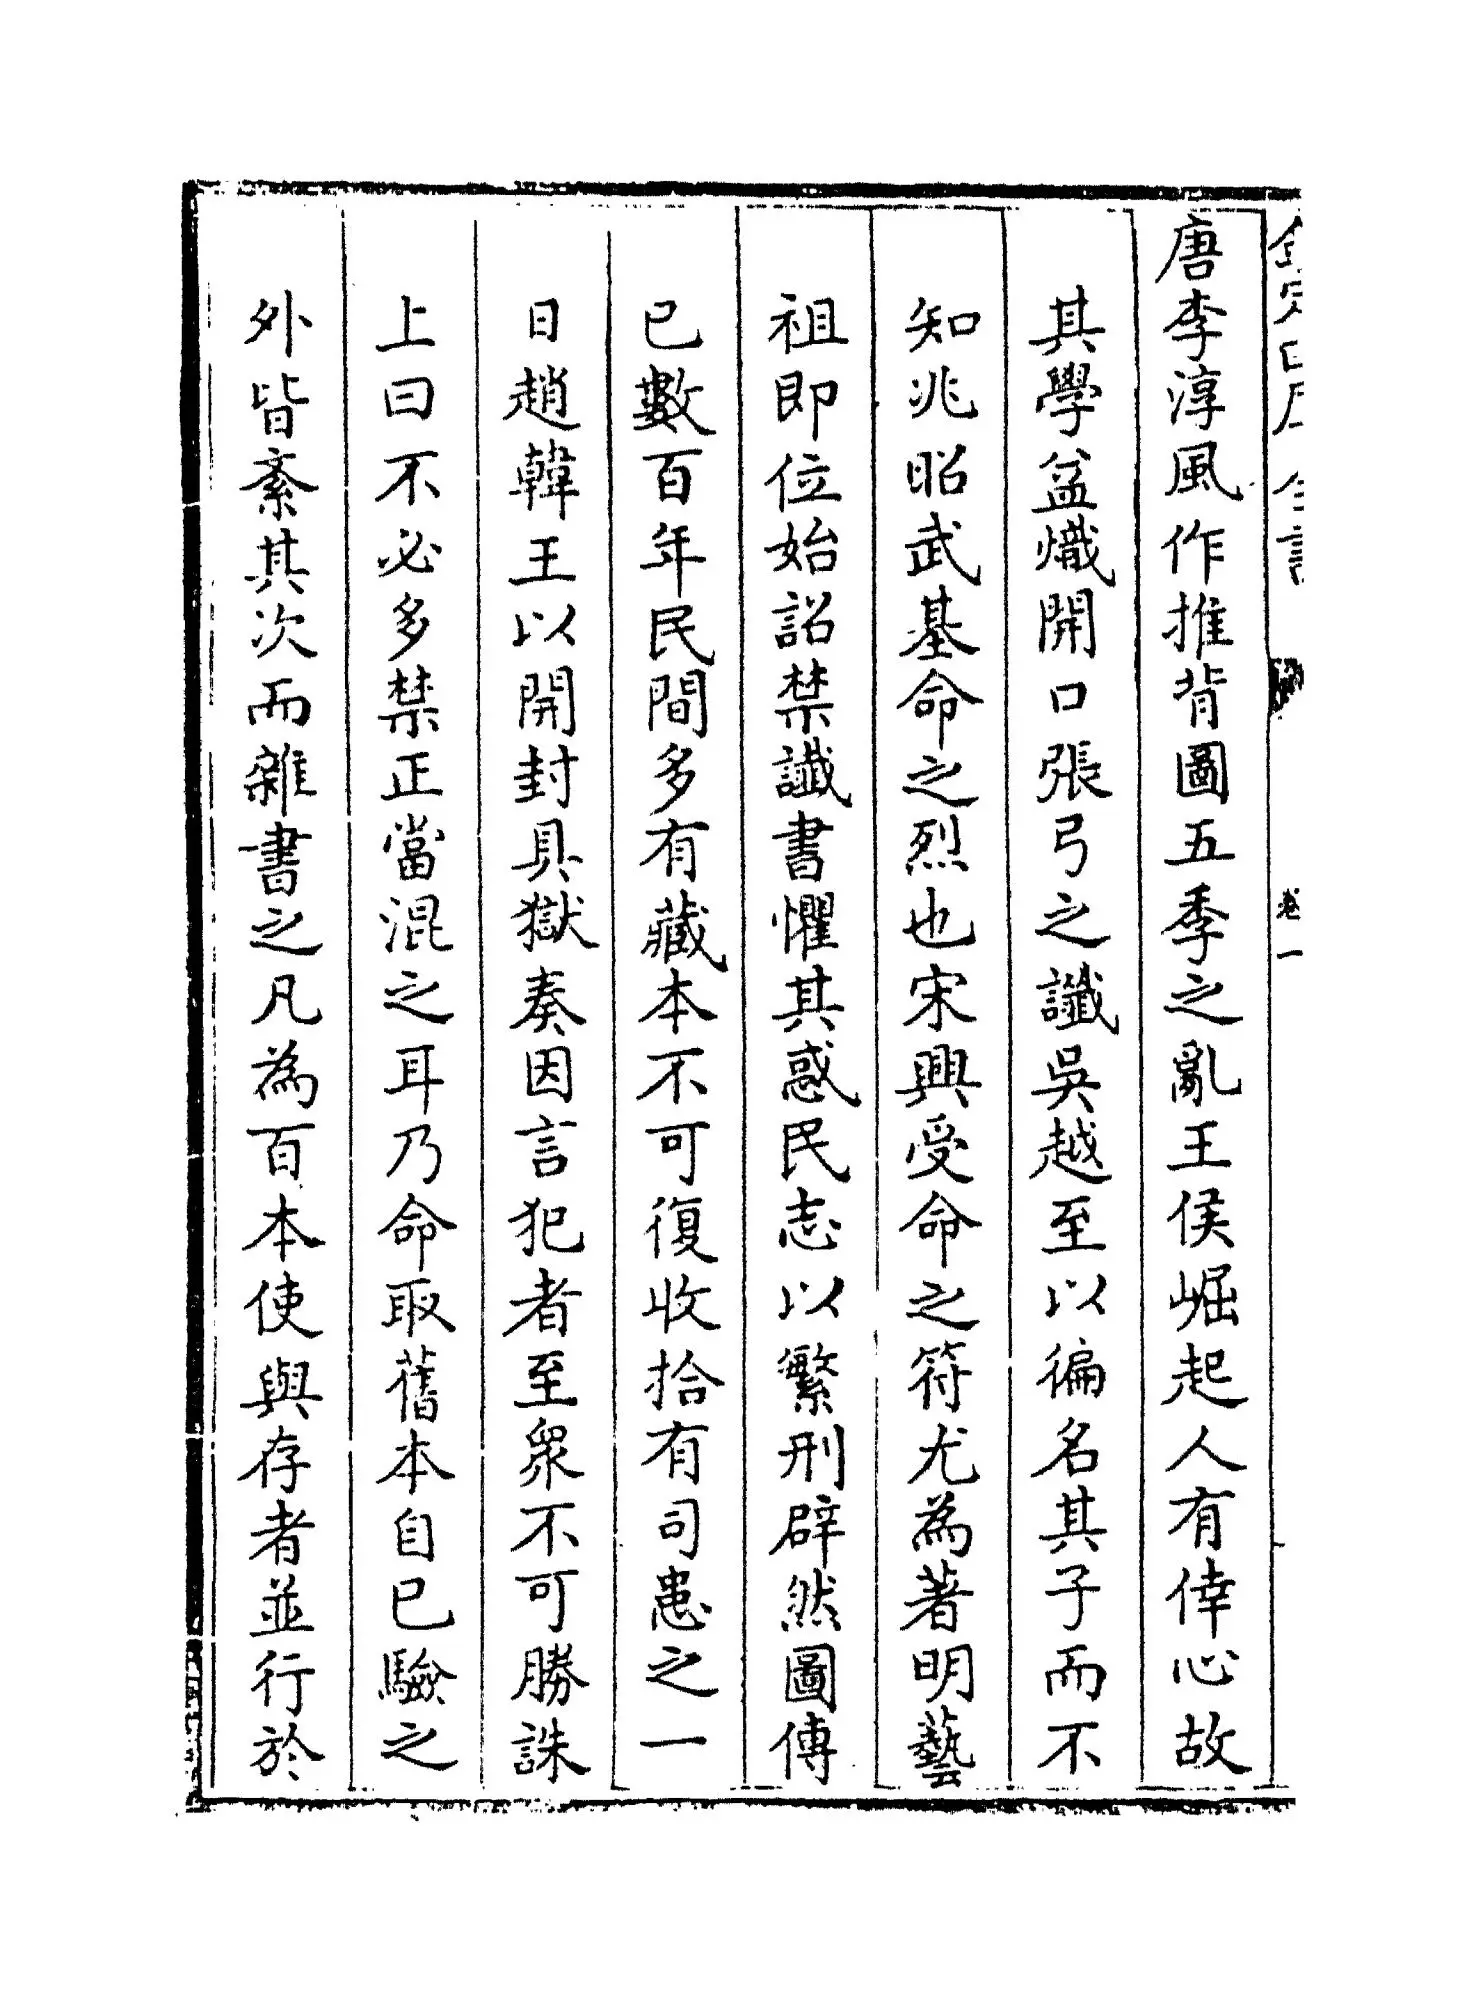 欽定四庫全書
卷一
唐李淳風作推背圖五季之亂王侯崛起人有倖心故
其學益熾開口張弓之讖吳越至以徧名其子而不
知兆昭武基命之烈也宋興受命之符尤為著明藝
祖即位始詔禁讖書懼其惑民志以繁刑辟然圖傳
已數百年民間多有藏本不可復收拾有司患之一
日趙韓王以開封具獄奏因言犯者至眾不可勝誅
上曰不必多禁正當混之耳乃命取舊本自已驗之
外皆紊其次而雜書之凡為百本使與存者並行於